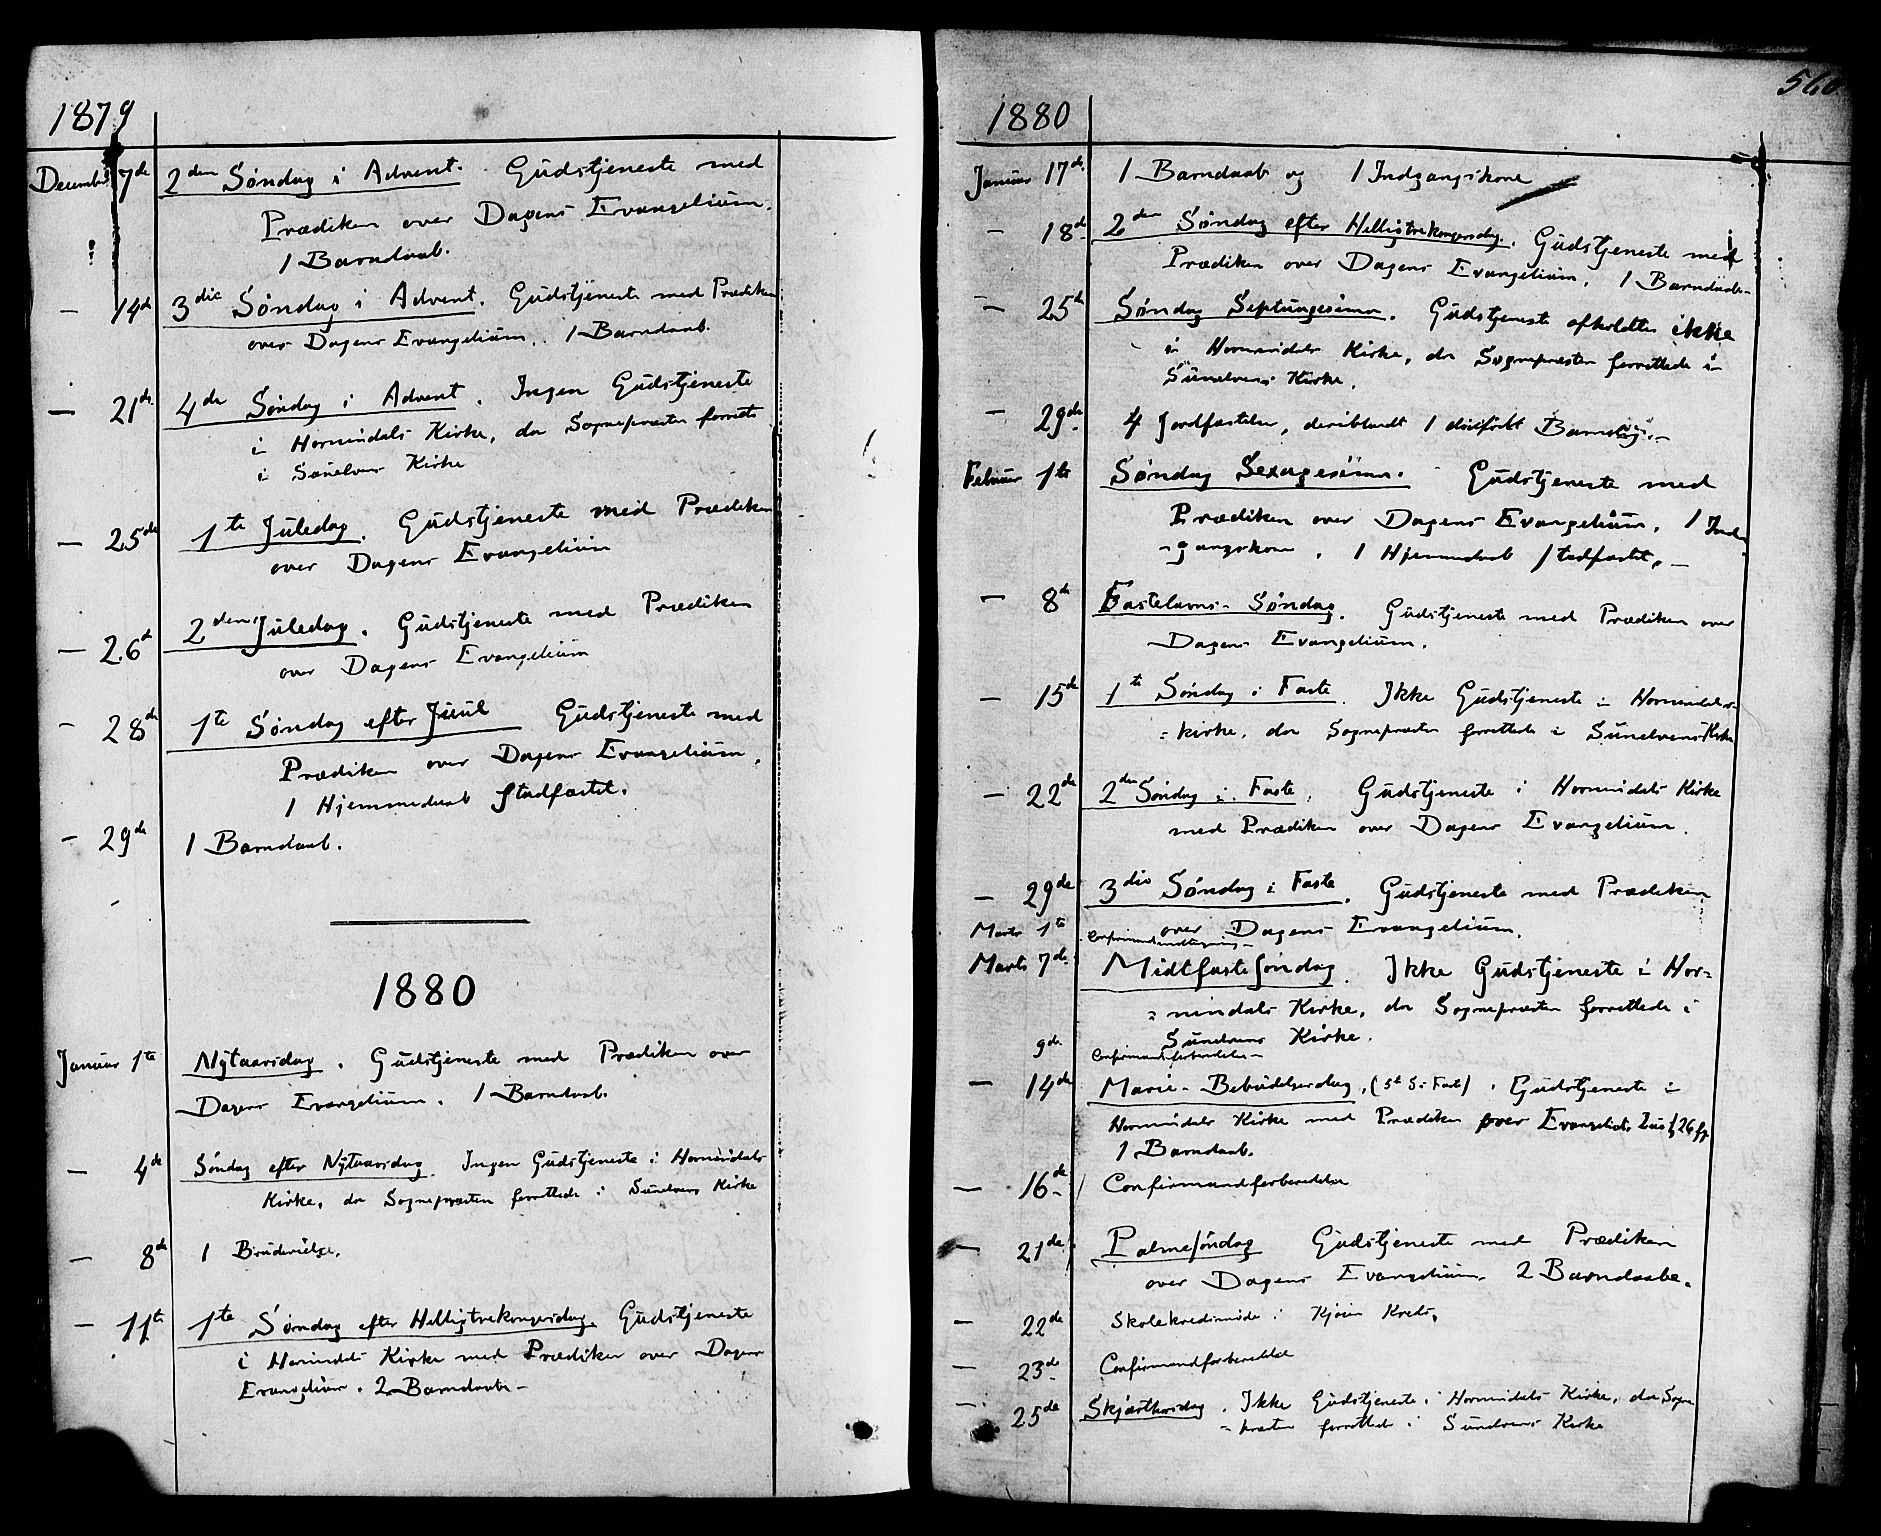 1879
December 7de 2den Søndag i Advent. Gudstjeneste med
Prædiken over Dagens Evangelium.
1 Barndaab.
— 14de 3die Søndag i Advent. Gudstjeneste med Prædiken
over Dagens Evangelium. 1 Barndaab.
— 21de 4de Søndag i Advent. Ingen Gudstjeneste
i Hornindals Kirke, da Sognepræsten forrett
i Sunelvens Kirke
— 25de 1te Juledag. Gudstjeneste med Prædiken
over Dagens Evangelium
— 26de 2den Juledag. Gudstjeneste med Prædiken
over Dagens Evangelium
— 28de 1te Søndag efter Juul Gudstjeneste med
Prædiken over Dagens Evangelium.
1 Hjemmedaab stadfæstet.
— 29de 1 Barndaab.
1880
Januar 1te Nytaarsdag. Gudstjeneste med Prædiken over
Dagens Evangelium. 1 Barndaab.
— 4de Søndag efter Nytaarsdag. Ingen Gudstjeneste i Hornindals
Kirke, da Sognepræsten forrettede i Sunelvens Kirke
— 8de 1 Brudevielse.
— 11te 1te Søndag efter Helligtrekongersdag. Gudstjeneste
i Hornindals Kirke med Prædiken over Dagens
Evangelium. 2 Barndaabe —
560
1880
Januar 17de 1 Barndaab og 1 Indgangskone
— 18de 2den Søndag efter Helligtrekongersdag. Gudstjeneste med
Prædiken over Dagens Evangelium. 1 Barndaab —
— 25de Søndag Septuagesima. Gudstjeneste afholdtes ikke
i Hornindals Kirke, da Sognepræsten forrettede i
Sunelvens Kirke.
— 29de 4 Jordfæstelser, deriblandt 1 dødfødt
Februar 1te Søndag Sexagesima. Gudstjeneste med
Prædiken over Dagens Evangelium. 1 Ind-
-gangskone. 1 Hjemmedaab stadfæstet. —
— 8de Fastelavns-Søndag. Gudstjeneste med Prædiken over
Dagens Evangelium.
— 15de 1te Søndag i Faste. Ikke Gudstjeneste i Hornindals-
=kirke, da Sognepræsten forrettede i Sunelvens Kirke
— 22de 2den Søndag i Faste. Gudstjeneste i Hornindals Kirke
med Prædiken over Dagens Evangelium.
— 29de 3die Søndag i Faste. Gudstjeneste med Prædiken
over Dagens Evangelium.
Marts 1te Confirmandindtegning —
Marts 7de Midtfastesøndag. Ikke Gudstjeneste i Hor=
=nindals Kirke, da Sognepræsten forrettede i
Sunelvens Kirke.
9de Confirmandforberedelse —
— 14de Marie-Bebudelsesdag, (5te S. i Fast). Gudstjeneste i
Hornindals Kirke med Prædiken over Evangeliet, Luc 1, 26 fg
1 Barndaab.
— 16de Confirmandforberedelse
— 21de Palmesøndag Gudstjeneste med Prædiken
over Dagens Evangelium. 2 Barndaabe.
— 22de Skolekredsmøde i Kjøs Kreds.
— 23de Confirmandforberedelse
— 25de Skjærthorsdag. Ikke Gudstjeneste i Hornindals Kirke, da Sogne
=præsten forrettede i Sunelvens Kirke